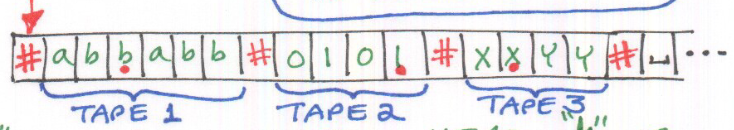 # a b b a b b # 0 1 0 1 # X X Y Y # ␣ ...
TAPE 1 TAPE 2 TAPE 3